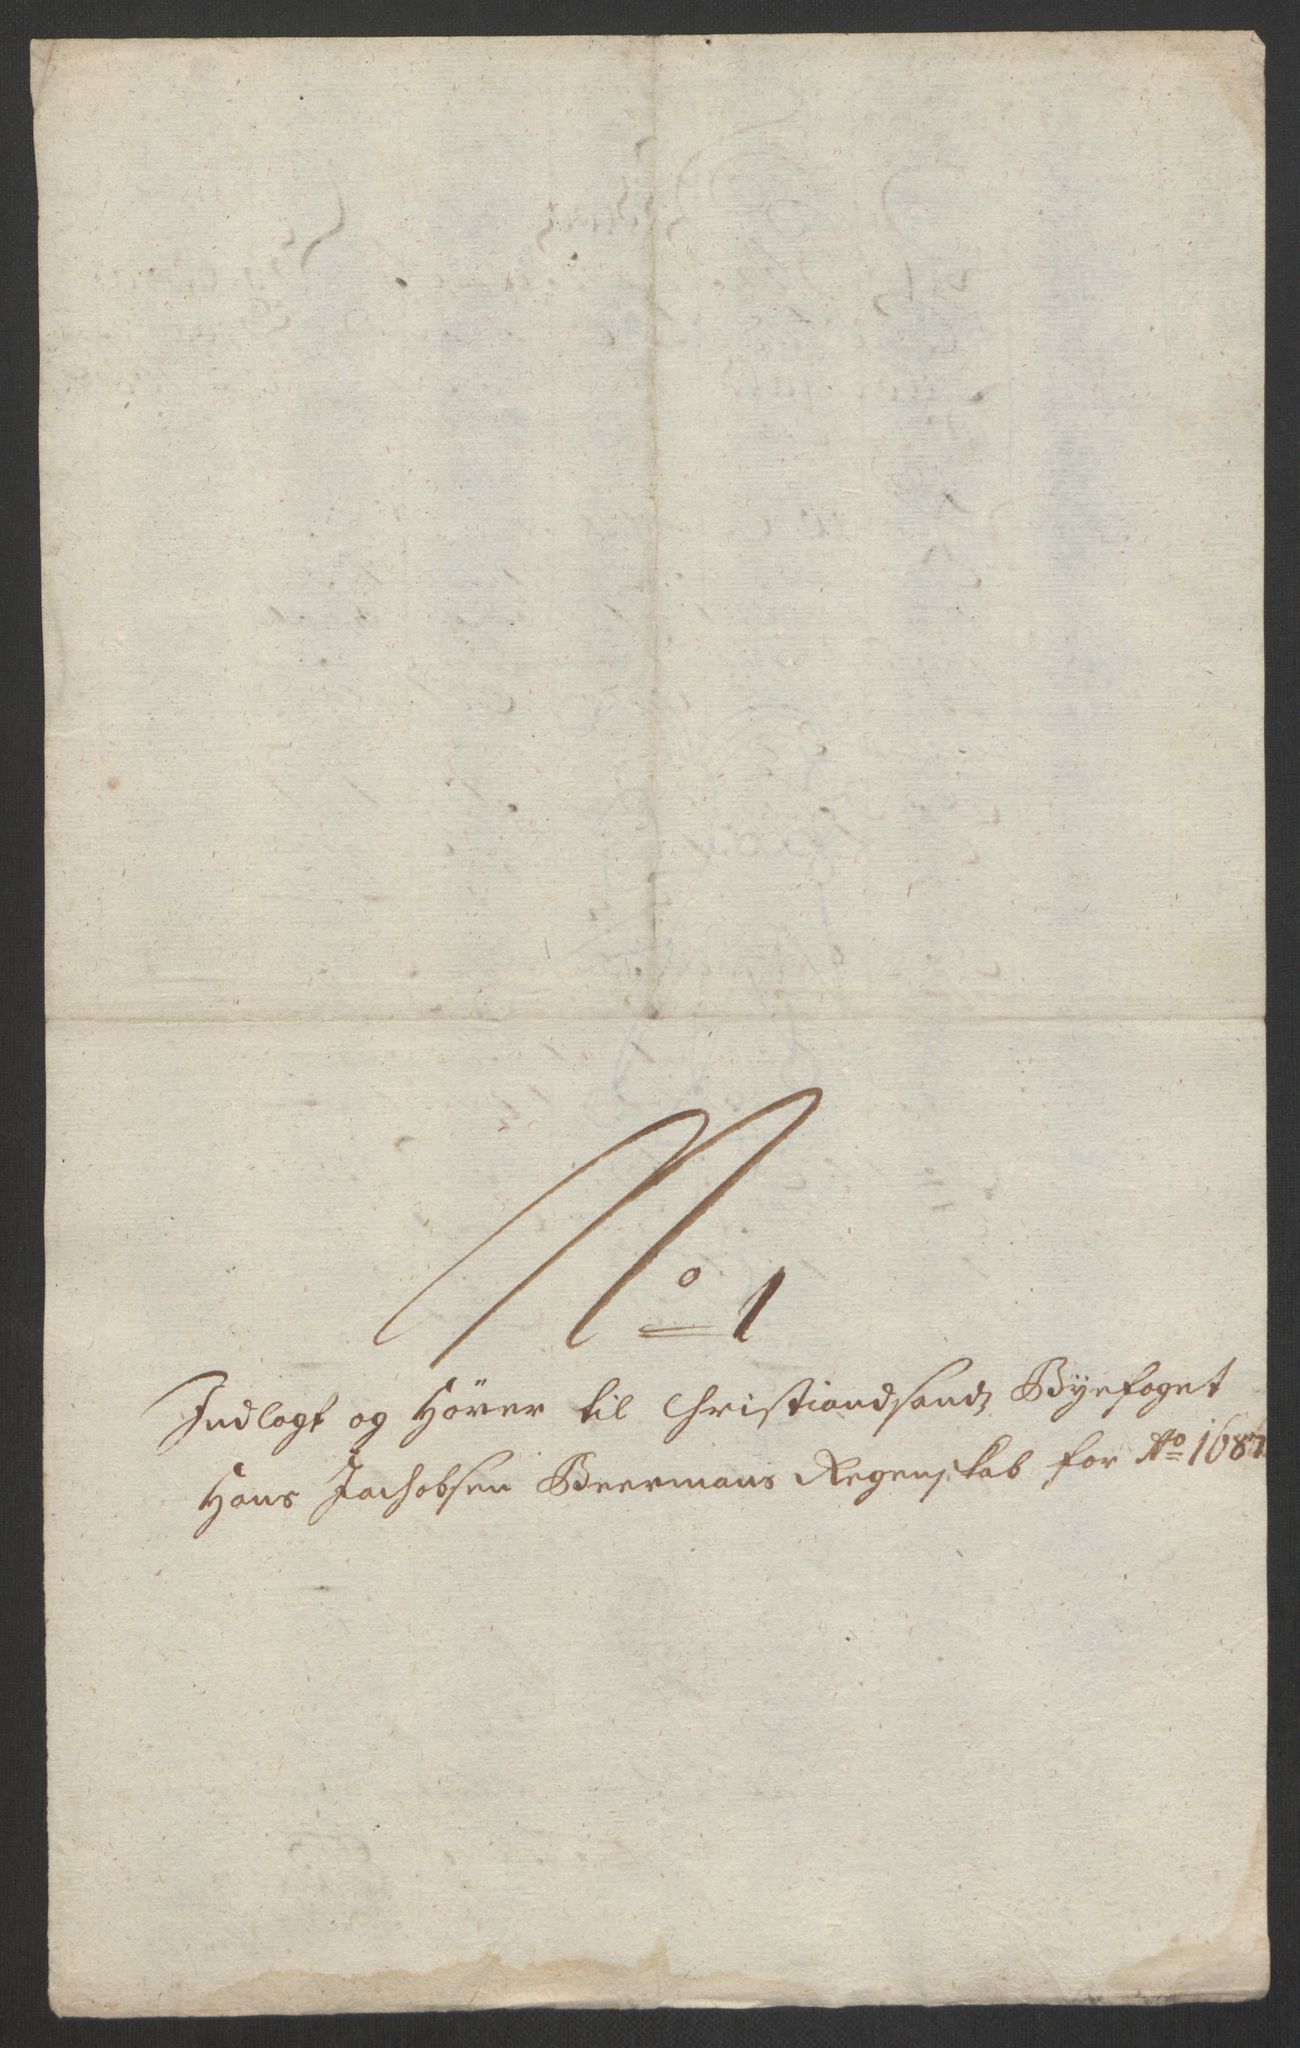 No 1
Indlagt og Hörer til Christiandsands Byefoget
Hans Jachobsen Beermans Regenskab for Ao 1687